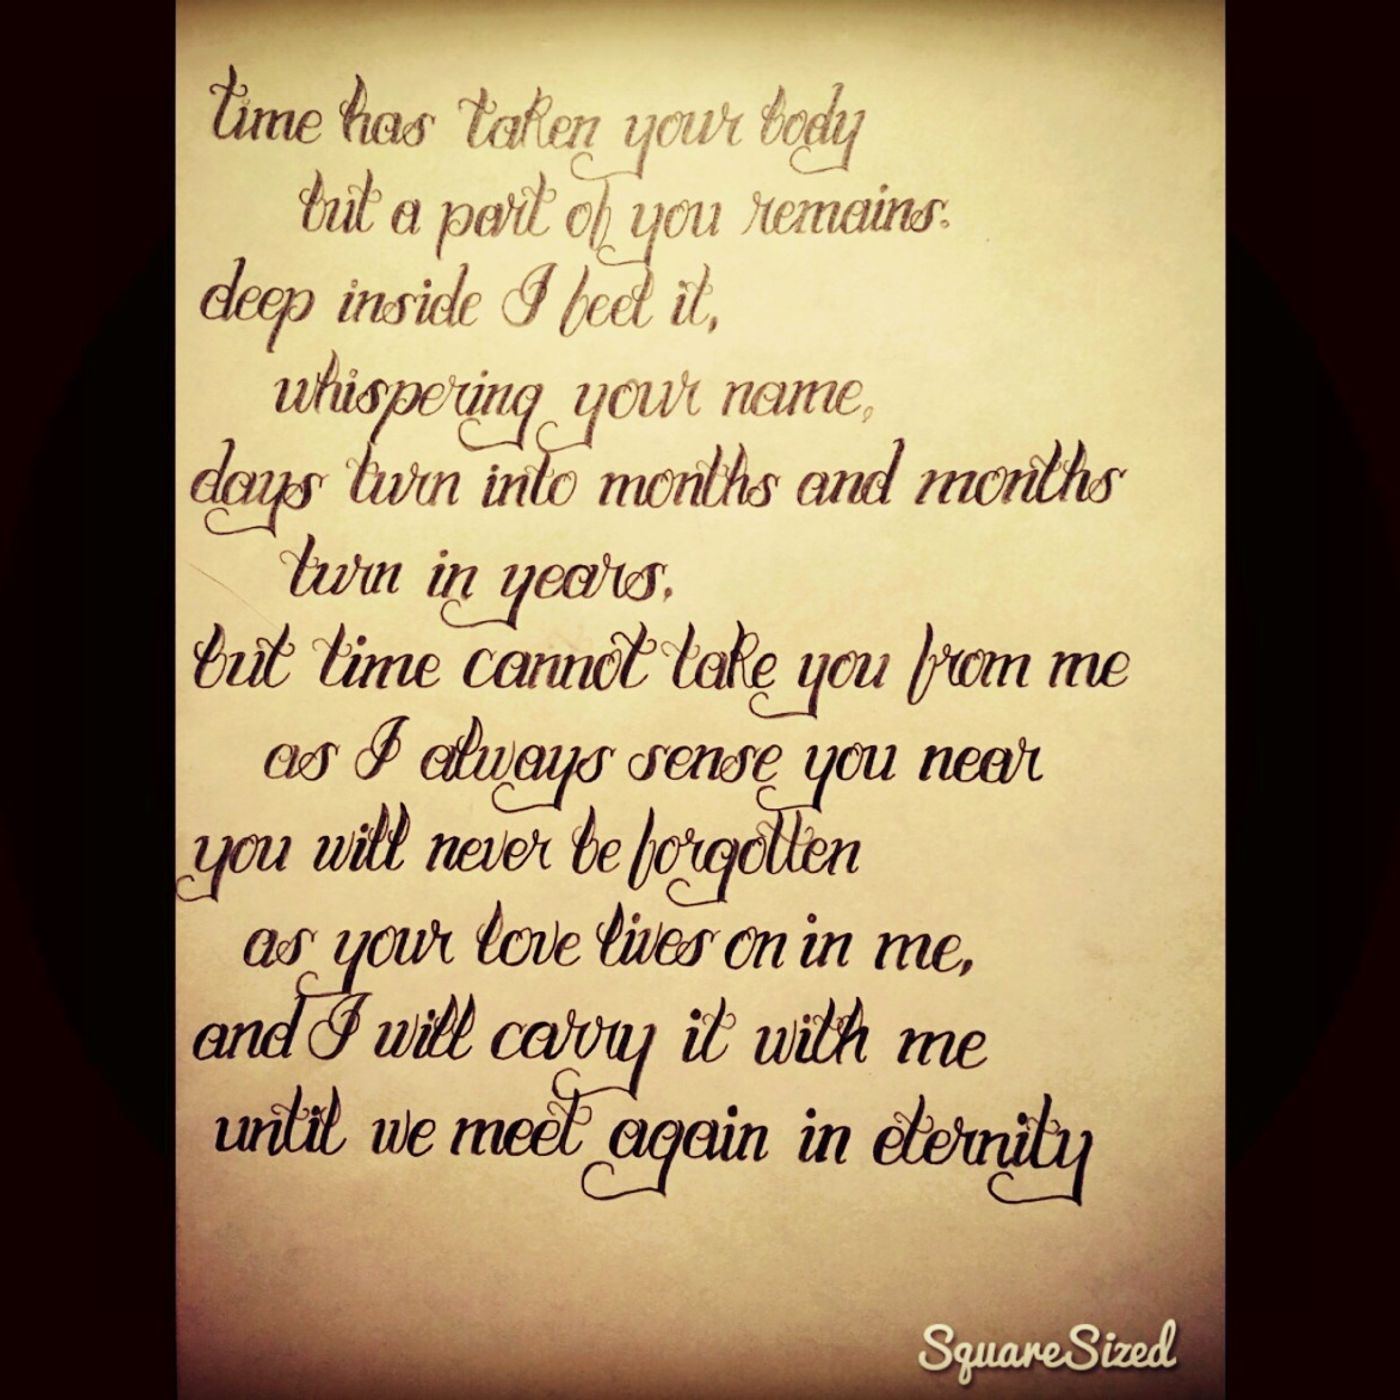 time has taken your body
but a part of you remains.
deep inside I feel it,
whispering your name,
days turn into months and months
turn in years.
but time cannot take you from me
as I always sense you near
you will never be forgotten
as your love lives on in me,
and I will carry it with me
until we meet again in eternity
SquareSized